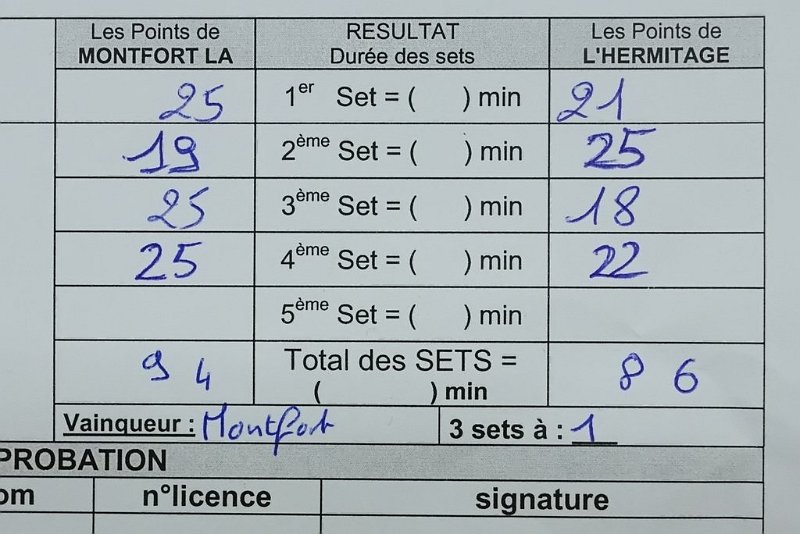 Les Points de RESULTAT Les Points de
MONTFORT LA Durée des sets L'HERMITAGE
25 1er Set = ( ) min 21
19 2ème Set = ( ) min 25
25 3ème Set = ( ) min 18
25 4ème Set = ( ) min 22
5ème Set = ( ) min
94 Total des SETS = 86
( ) min
Vainqueur : Montfort 3 sets à : 1
PROBATION
om n°licence signature